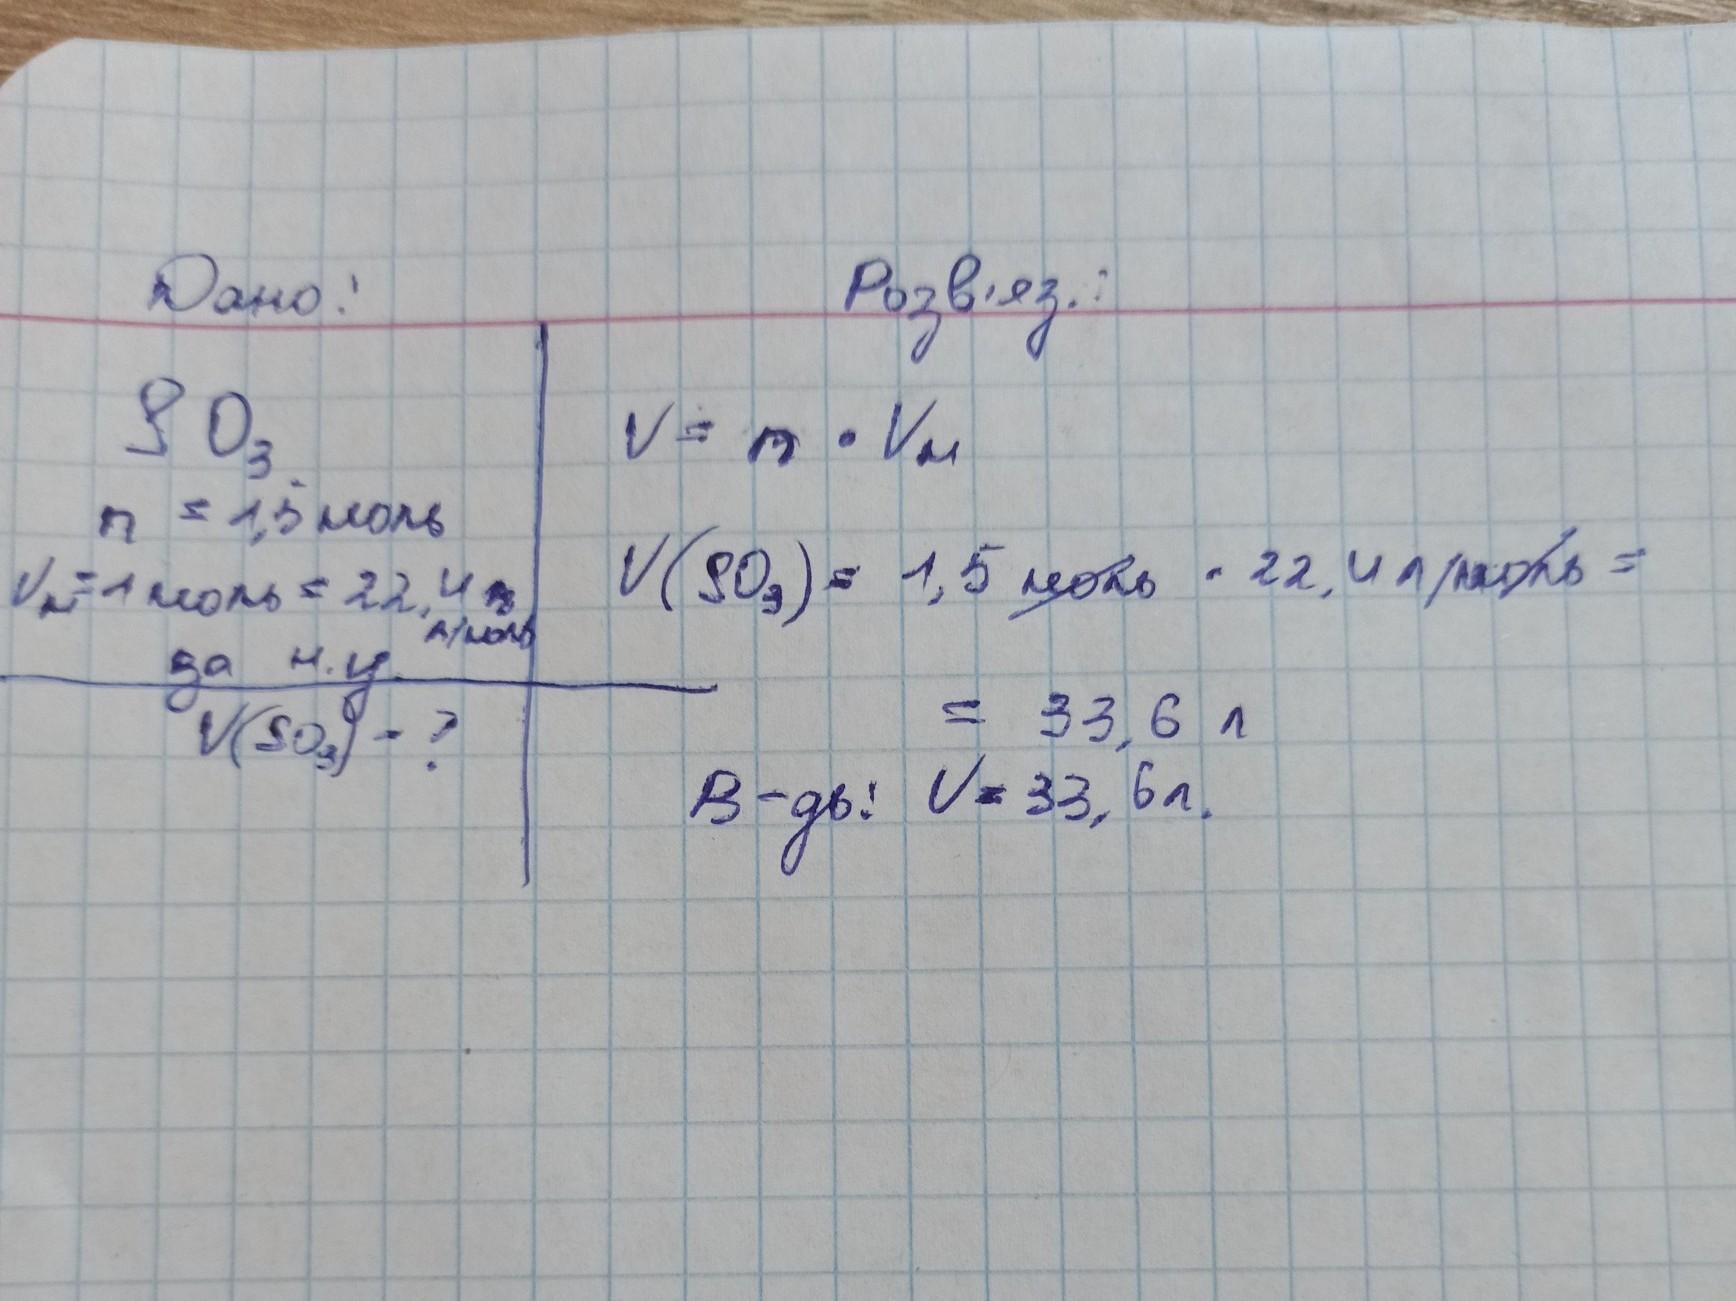 Дано:
SO₃
n = 1,5 моль
Vм = 1 моль = 22,4
л/моль
за н.у.
V(SO₃) - ?
Розв'яз.:
V = n · Vм
V(SO₃) = 1,5 моль · 22,4 л/моль =
= 33,6 л
В-дь: V = 33,6 л.